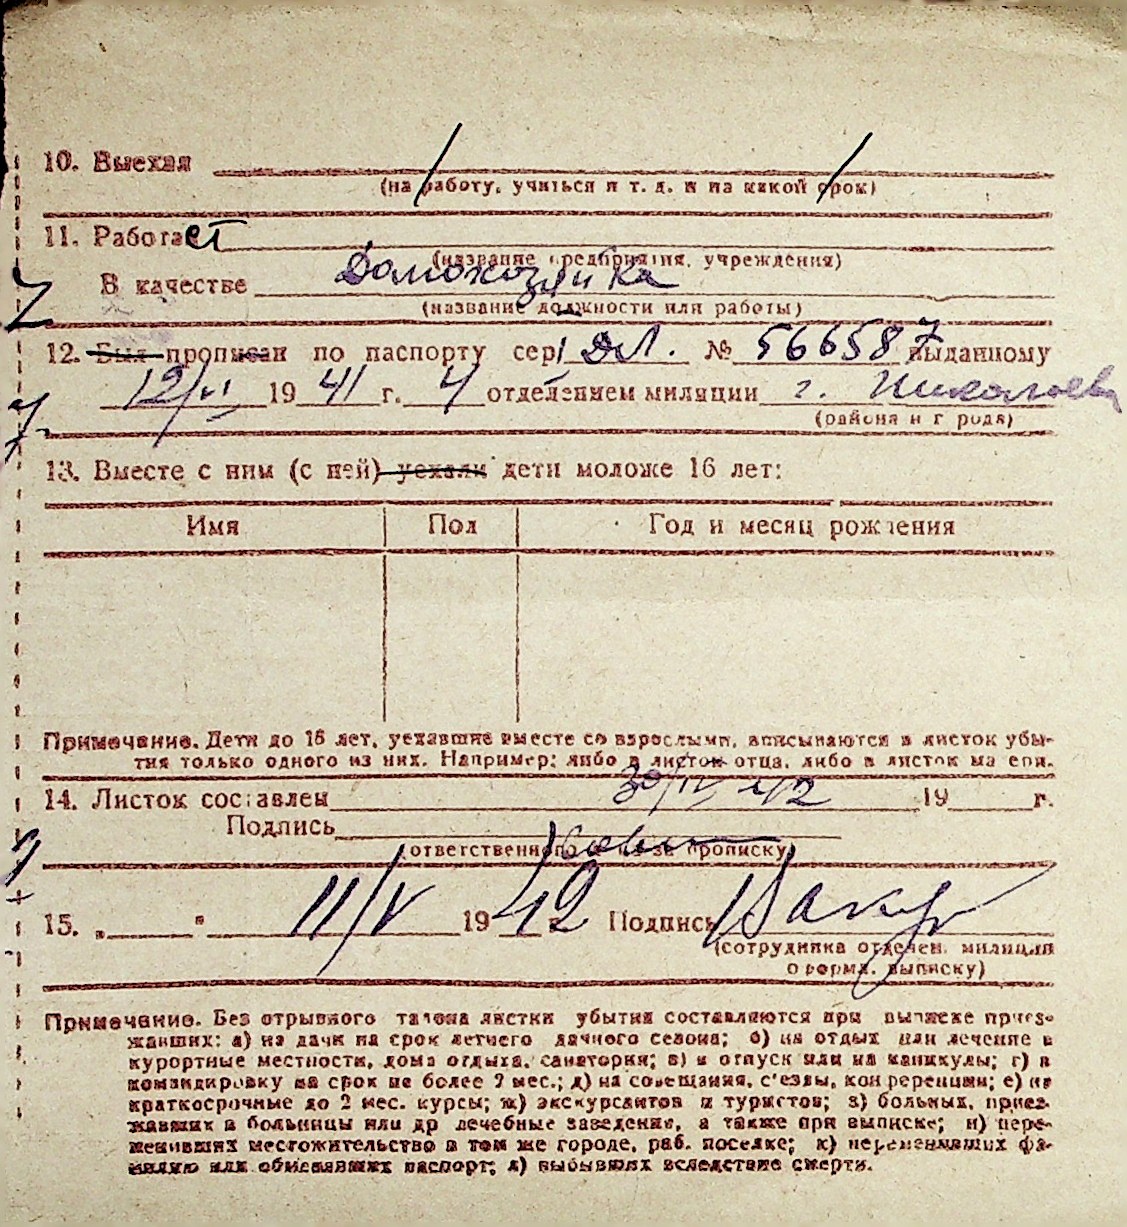 10. Выехал
(на работу, учиться и т. д. и на какой срок)
11. Работает
(название предприятия, учреждения)
В качестве Домохозяйка
(название должности или работы)
12. Был прописан по паспорту сер. ДЛ. № 566587 выданному
12/VI 1941 г. 4 отделением милиции г. Николаев
(района и города)
13. Вместе с ним (с ней) уехали дети моложе 16 лет:
Имя Пол Год и месяц рождения
Примечание. Дети до 16 лет, уехавшие вместе со взрослыми, вписываются в листок убы-
тия только одного из них. Например: либо в листок отца, либо в листок матери.
14. Листок составлен 30/IV 42 19 г.
Подпись
(ответственного за прописку)
15. „ " 11/V 1942 Подпись
(сотрудника отделен. милиции
оформл. выписку)
Примечание. Без отрывного талона листки убытия составляются при выписке приез-
жавших: а) на дачи на срок летнего дачного сезона; б) на отдых или лечение в
курортные местности, дома отдыха, санатории; в) в отпуск или на каникулы; г) в
командировку на срок не более 2 мес.; д) на совещания, с'езды, конференции; е) на
краткосрочные до 2 мес. курсы; ж) экскурсантов и туристов; з) больных, приез-
жавших в больницы или др лечебные заведения, а также при выписке; и) пере-
менивших местожительство в том же городе, раб. поселке; к) переменивших фа-
милию или обменявших паспорт; л) выбывших вследствие смерти.